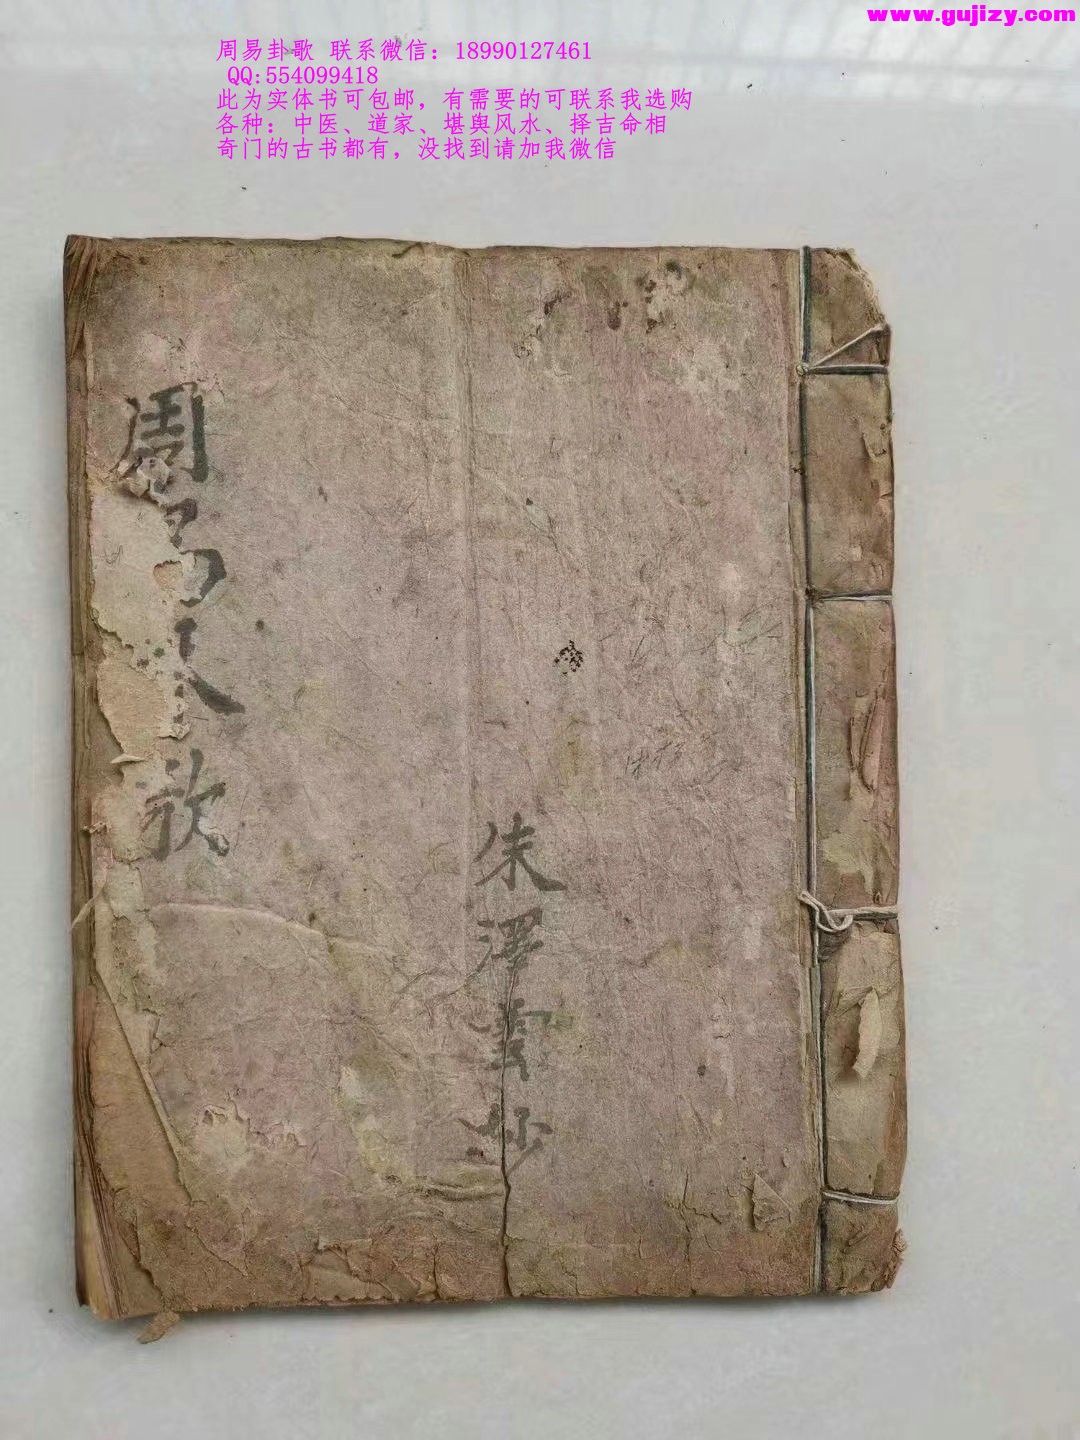 www.gujizy.com
周易卦歌 联系微信：18990127461
QQ:554099418
此为实体书可包邮，有需要的可联系我选购
各种：中医、道家、堪舆风水、择吉命相
奇门的古书都有，没找到请加我微信
朱澤雲抄
周易